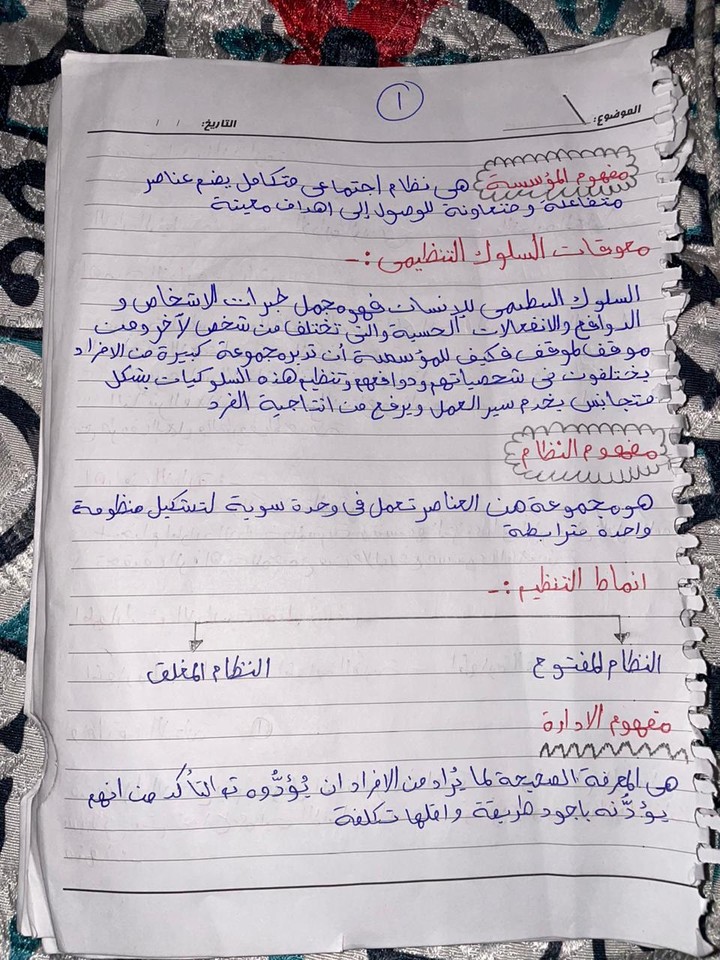 ١
الموضوع:
التاريخ: / /
مفهوم المؤسسة هي نظام اجتماعي متكامل يضم عناصر
متفاعلة و متعاونة للوصول إلى اهداف معينة
معوقات السلوك التنظيمى :-
السلوك التنظيمى للإنسان فهو مجمل خبرات الاشخاص و
الدوافع والانفعالات الحسية والتى تختلف من شخص لآخر ومن
موقف لموقف فكيف للمؤسسة أن تدير مجموعة كبيرة من الافراد
يختلفون فى شخصياتهم ودوافعهم وتنظيم هذه السلوكيات بشكل
متجانس يخدم سير العمل ويرفع من انتاجية الفرد
مفهوم النظام
هو مجموعة من العناصر تعمل فى وحدة سوية لتشكيل منظومة
واحدة مترابطة
انماط التنظيم :-
النظام المفتوح النظام المغلق
مفهوم الادارة
هى المعرفة الصحيحة لما يُراد من الافراد ان يُؤدُّوه ثم التأكد من انهم
يؤدُّنه باجود طريقة واقلها تكلفة